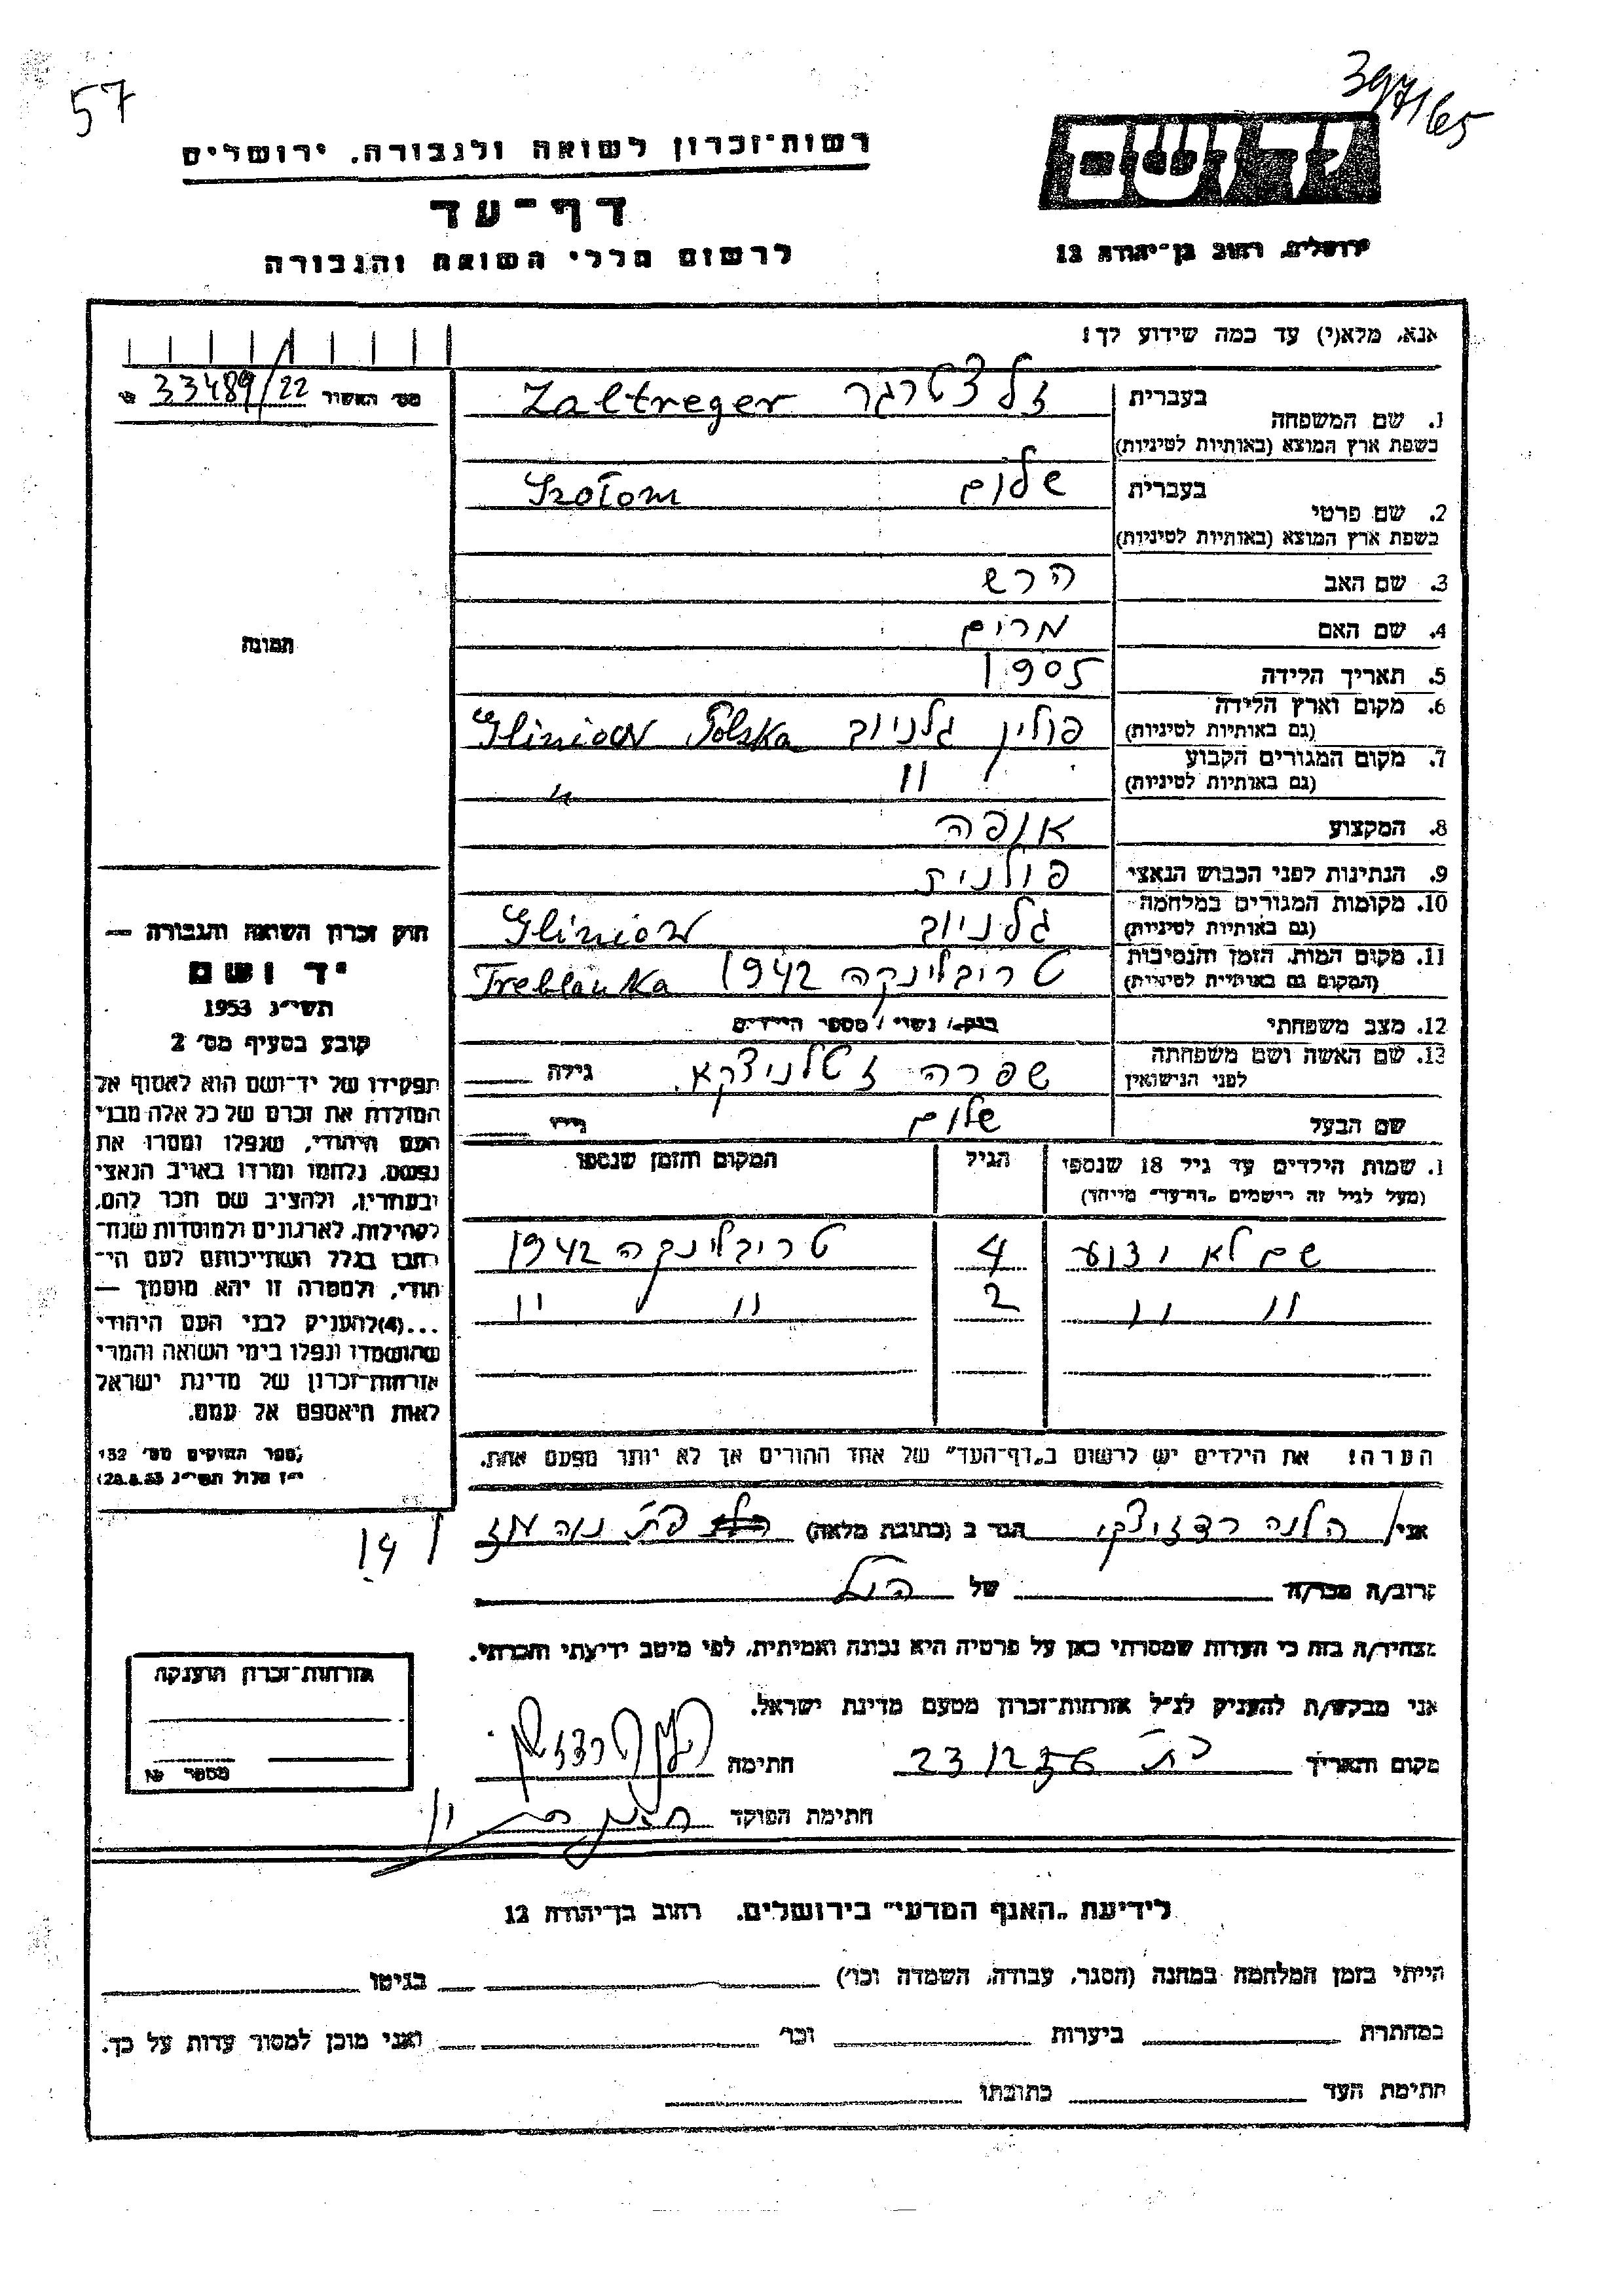 57
397/65
רשות־זכרון לשואה ולגבורה. ירושלים
יד ושם
דף־עד
לרשום חללי השואה והגבורה
ירושלים, רחוב בן־יהודה 12
אנא, מלא(י) עד כמה שידוע לך!
מס' האשור 33489/22
1. שם המשפחה
בעברית זלצטרגר Zaltreger
בשפת ארץ המוצא (באותיות לטיניות)
2. שם פרטי
בעברית שלום Szołom
בשפת ארץ המוצא (באותיות לטיניות)
3. שם האב הרש
4. שם האם מרים
5. תאריך הלידה 1905
6. מקום וארץ הלידה פולין גלניוב Gliniow Polska
(גם באותיות לטיניות)
7. מקום המגורים הקבוע " "
(גם באותיות לטיניות)
8. המקצוע אופה
9. הנתינות לפני הכבוש הנאצי פולנית
10. מקומות המגורים במלחמה גלניוב Gliniow
(גם באותיות לטיניות)
11. מקום המות, הזמן והנסיבות טריבלינקה 1942 Treblanka
(המקום גם באותיות לטיניות)
12. מצב משפחתי נשוי / מספר הילדים
13. שם האשה ושם משפחתה שפרה גילה
לפני הנישואין
שם הבעל שלום גילו
תמונה
חוק זכרון השואה והגבורה —
יד ושם
תשי"ג 1953
קובע בסעיף מס' 2
תפקידו של יד־ושם הוא לאסוף אל
המולדת את זכרם של כל אלה מבני
העם היהודי, שנפלו ומסרו את
נפשם, נלחמו ומרדו באויב הנאצי
ובעוזריו, ולהציב שם וזכר להם,
לקהילות, לארגונים ולמוסדות שנח־
רבו בגלל השתייכותם לעם הי־
הודי, ולמטרה זו יהא מוסמך —
...(4) להעניק לבני העם היהודי
שהושמדו ונפלו בימי השואה והמרי
אזרחות־זכרון של מדינת ישראל
לאות היאספם אל עמם.
(ספר החוקים מס' 132
י"ז אלול תשי"ג 28.8.53)
1. שמות הילדים עד גיל 18 שנספו הגיל המקום והזמן שנספו
(מעל לגיל זה רושמים "דף־עד" מיוחד)
שם לא ידוע 4 טריבלינקה 1942
" " 2 " "
הערה! את הילדים יש לרשום ב„דף־העד" של אחד ההורים אך לא יותר מפעם אחת.
אני הלנה רדזיצקי הגר ב (כתובת מלאה) פת נוה
קרוב/ה מכר/ה של הנ"ל
מצהיר/ה בזה כי העדות שמסרתי כאן על פרטיה היא נכונה ואמיתית, לפי מיטב ידיעתי והכרתי.
אני מבקש/ת להעניק לנ"ל אזרחות־זכרון מטעם מדינת ישראל.
מקום ותאריך חתימה
חתימת הפוקד
אזרחות־זכרון הוענקה
מספר
לידיעת „האגף המדעי" בירושלים, רחוב בן־יהודה 12
הייתי בזמן המלחמה במחנה (הסגר, עבודה, השמדה וכו') בגיטו
במחתרת ביערות וכו' ואני מוכן למסור עדות על כך.
חתימת העד כתובתו